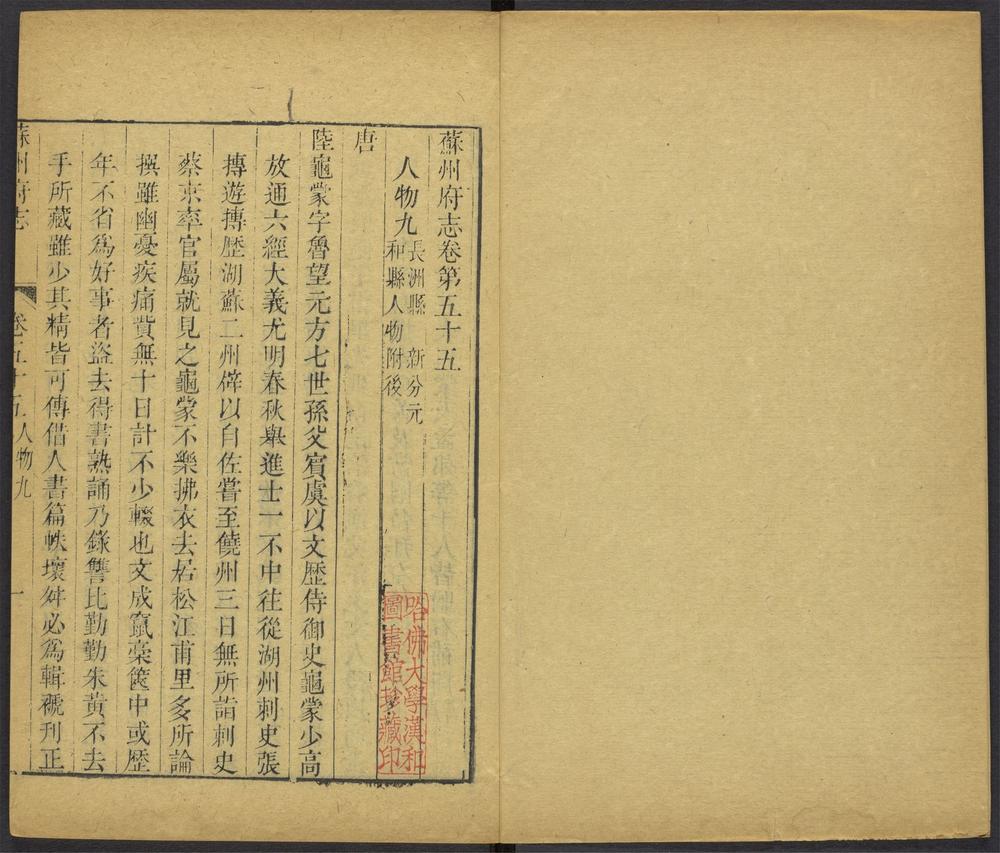 蘇州府志卷第五十五
人物九 長洲縣 新分元
和縣人物附後
唐
陸龜蒙字魯望元方七世孫父賓虞以文歷侍御史龜蒙少高
放通六經大義尤明春秋舉進士一不中往從湖州刺史張
摶遊摶歷湖蘇二州辟以自佐嘗至饒州三日無所詣刺史
蔡京率官屬就見之龜蒙不樂拂衣去居松江甫里多所論
撰雖幽憂疾痛貲無十日計不少輟也文成竄稾篋中或歷
年不省爲好事者盜去得書熟誦乃錄讐比勤勤朱黃不去
手所藏雖少其精皆可傳借人書篇帙壞舛必爲輯褫刊正
蘇州府志 卷五十五 人物九 一
哈佛大學漢和
圖書館珍藏印